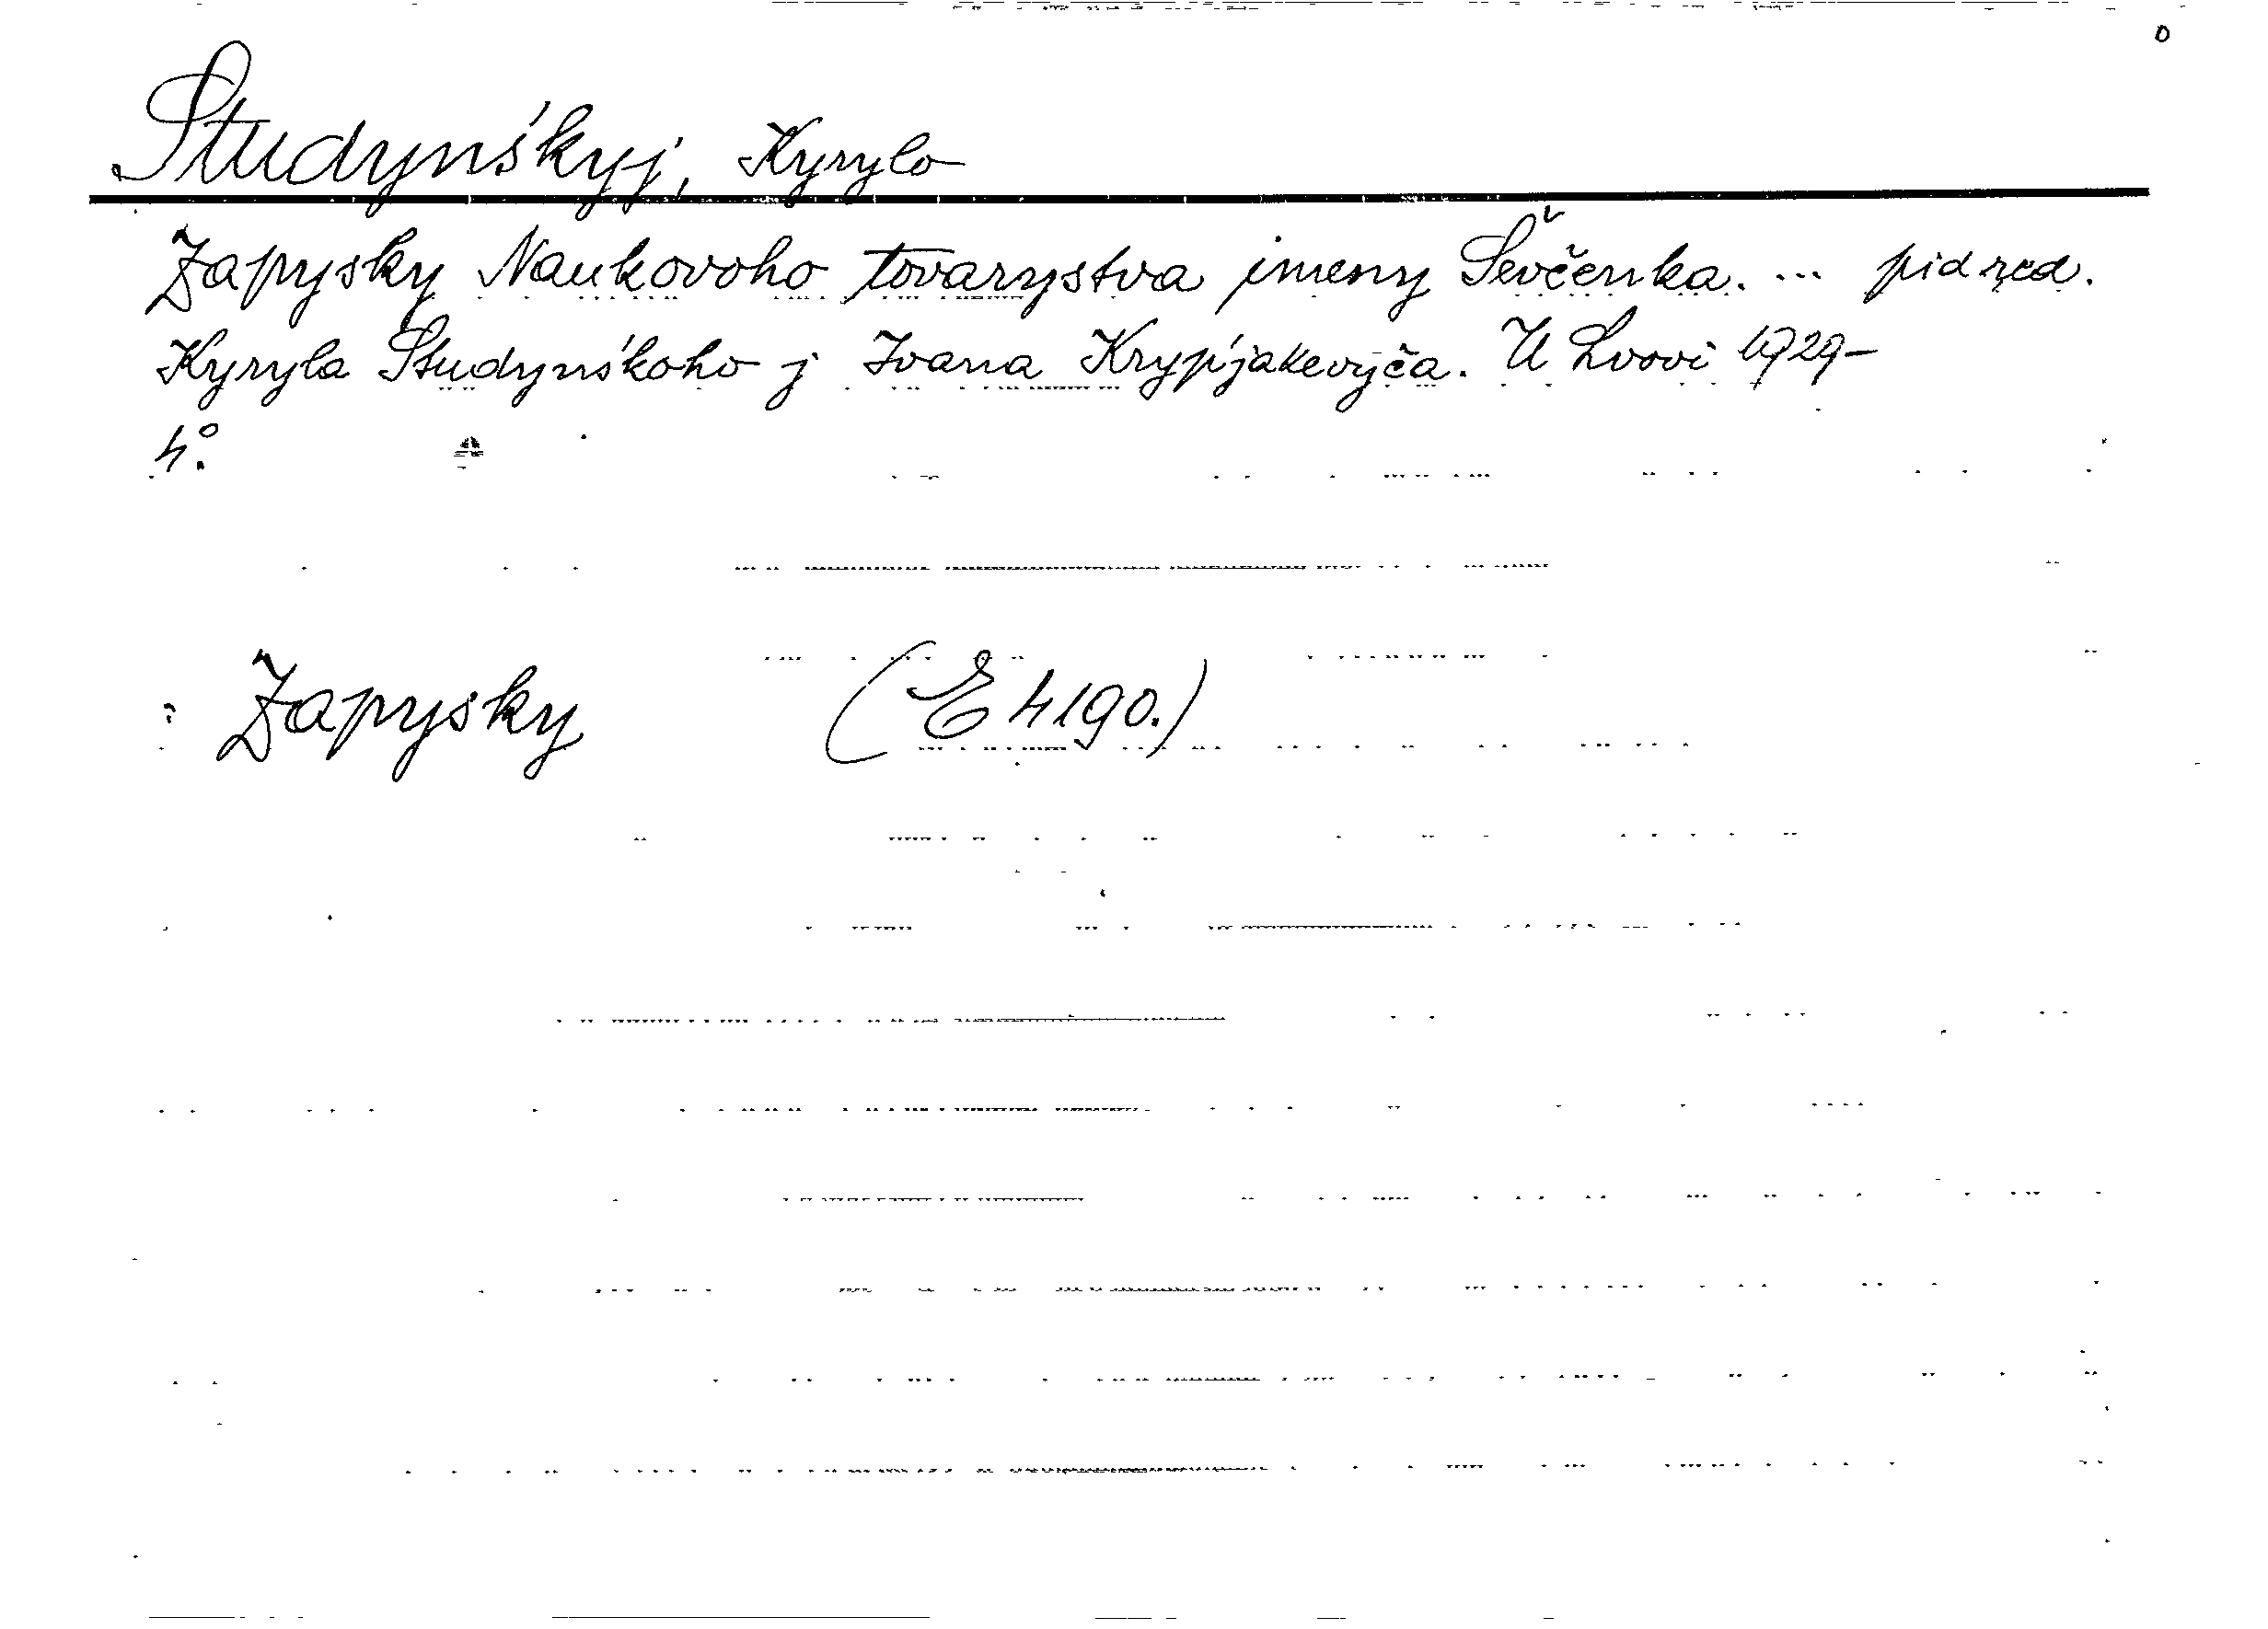 Studynśkyj, Kyrylo
Zapysky Naukovoho tovarystva imeny Ševčenka. ... pid red.
Kyryla Studynśkoho j Ivana Kryp'jakevyča. U Lvovi 1929-
4°.
Zapysky (E 4190.)